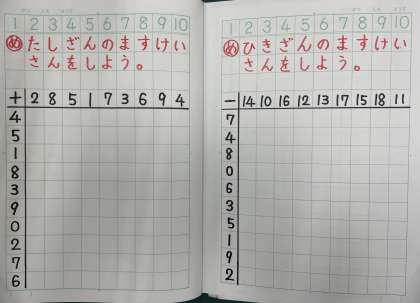 1 2 3 4 5 6 7 8 9 10
め たしざんのますけい
さんをしよう。
+ 2 8 5 1 7 3 6 9 4
4
5
1
8
3
9
0
2
7
6
1 2 3 4 5 6 7 8 9 10
め ひきざんのますけい
さんをしよう。
- 14 10 16 12 13 17 15 18 11
7
4
8
0
6
3
5
1
9
2